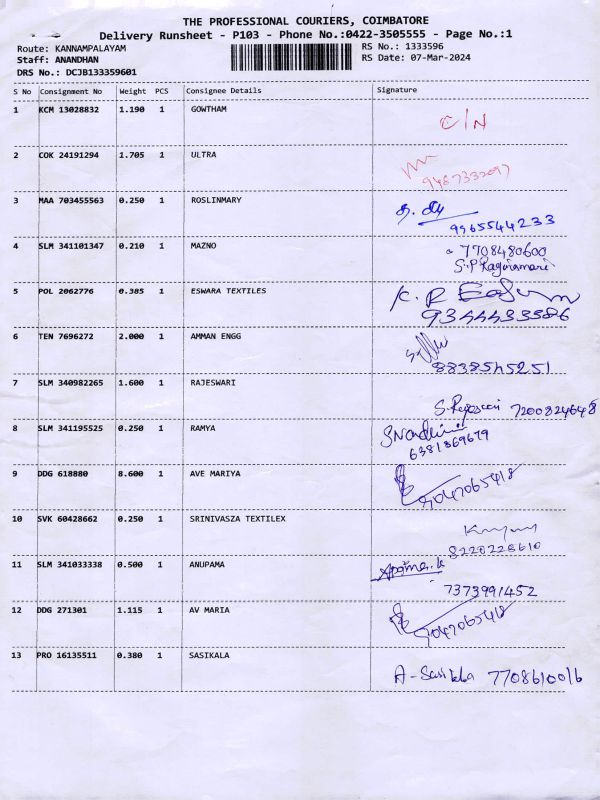 THE PROFESSIONAL COURIERS, COIMBATORE
Delivery Runsheet - P103 - Phone No.:0422-3505555 - Page No.:1
Route: KANNAMPALAYAM
RS No.: 1333596
Staff: ANANDHAN
RS Date: 07-Mar-2024
DRS No.: DCJB133359601
S No Consignment No Weight PCS Consignee Details Signature
1 KCM 13028832 1.190 1 GOWTHAM
C/N
2 COK 24191294 1.705 1 ULTRA
3 MAA 703455563 0.250 1 ROSLINMARY
9965544233
4 SLM 341101347 0.210 1 MAZNO
7708480600
5 POL 2062776 0.385 1 ESWARA TEXTILES
9344433386
6 TEN 7696272 2.000 1 AMMAN ENGG
8838545251
7 SLM 340982265 1.600 1 RAJESWARI
7200824648
8 SLM 341195525 0.250 1 RAMYA
6381369679
9 DDG 618880 8.600 1 AVE MARIYA
9047065418
10 SVK 60428662 0.250 1 SRINIVASZA TEXTILEX
8220228610
11 SLM 341033338 0.500 1 ANUPAMA
7373991452
12 DDG 271301 1.115 1 AV MARIA
9047065418
13 PRO 16135511 0.380 1 SASIKALA
A-Sasikala 7708610016